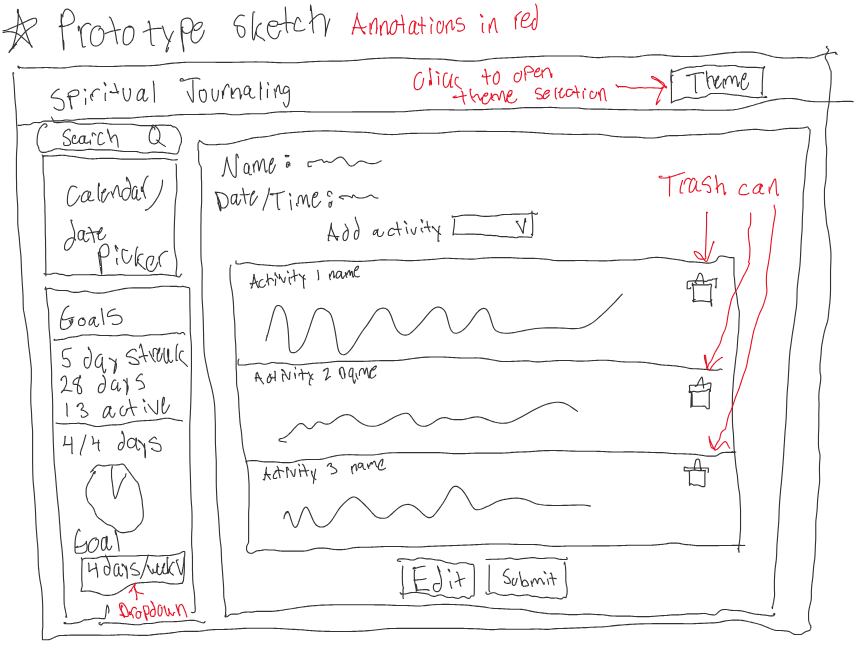 Prototype sketch Annotations in red
Spiritual Journaling
Click to open
theme selection
Theme
Search
Calendar/
date
Picker
Goals
5 day streak
28 days
13 active
4/4 days
Goal
4 days/week V
Dropdown
Name:
Date/Time:
Add activity V
Trash can
Activity 1 name
Activity 2 name
Activity 3 name
Edit
Submit